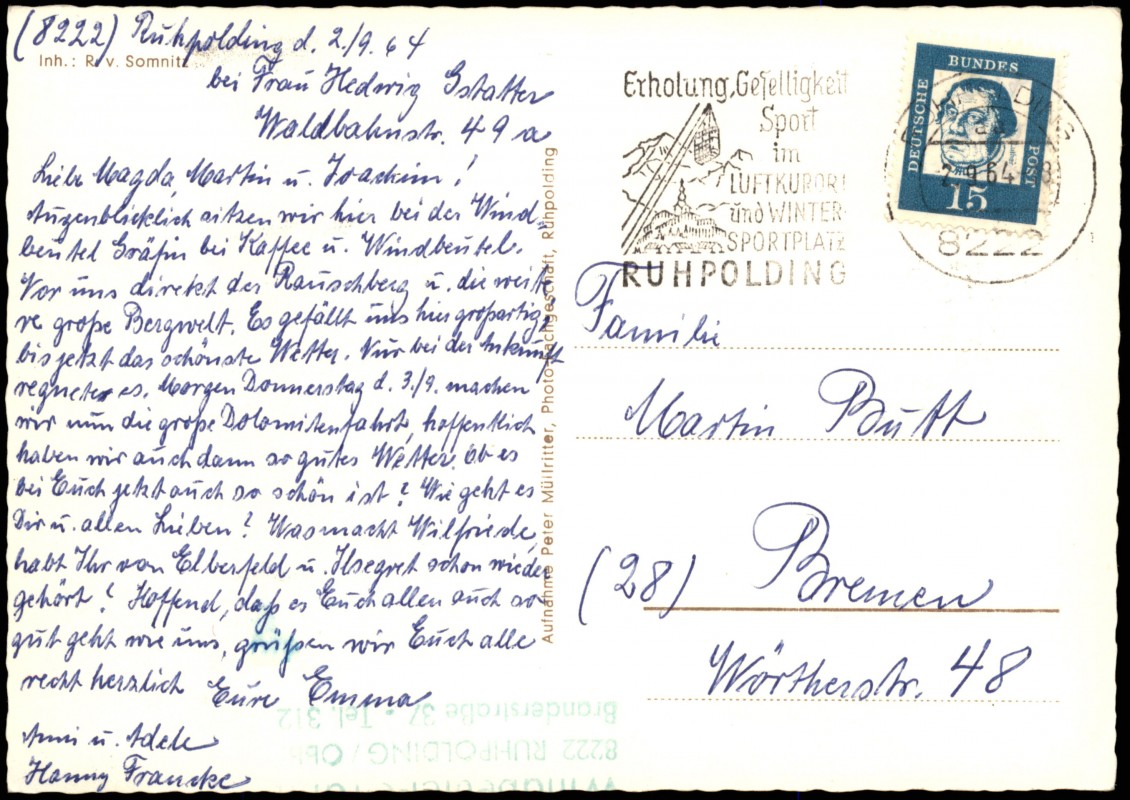 (8222) Ruhpolding d. 2./9. 64
Inh.: R. v. Somnitz
bei Frau Hedwig Gstatter
Waldbahnstr. 49 a
Liebe Magda, Martin u. Joachim!
Augenblicklich sitzen wir hier bei der Wind
beutel Gräfin bei Kaffee u. Windbeutel.
Vor uns direkt der Rauschberg u. die weite
re große Bergwelt. Es gefällt uns hier großartig,
bis jetzt das schönste Wetter. Nur bei der Ankunft
regnete es. Morgen Donnerstag d. 3./9. machen
wir nun die große Dolomitenfahrt, hoffentlich
haben wir auch dann so gutes Wetter. Ob es
bei Euch jetzt auch so schön ist? Wie geht es
Dir u. allen Lieben? Was macht Wilfriede,
habt Ihr von Elberfeld u. Ilsegret schon wieder
gehört? Hoffend, daß es Euch allen auch so
gut geht wie uns, grüßen wir Euch alle
recht herzlich Eure Emma
Anni u. Adele
Hanny Francke
Aufnahme Peter Müllritter, Photo-Fachgeschäft, Ruhpolding
Erholung, Geselligkeit
Sport
im
LUFTKURORT
und WINTER-
SPORTPLATZ
RUHPOLDING
DEUTSCHE
BUNDES
POST
15
2.-9.64
8222
Familie
Martin Butt
(28) Bremen
Wörtherstr. 48
8222 RUHPOLDING / Obb
Branderstraße 37 - Tel. 312